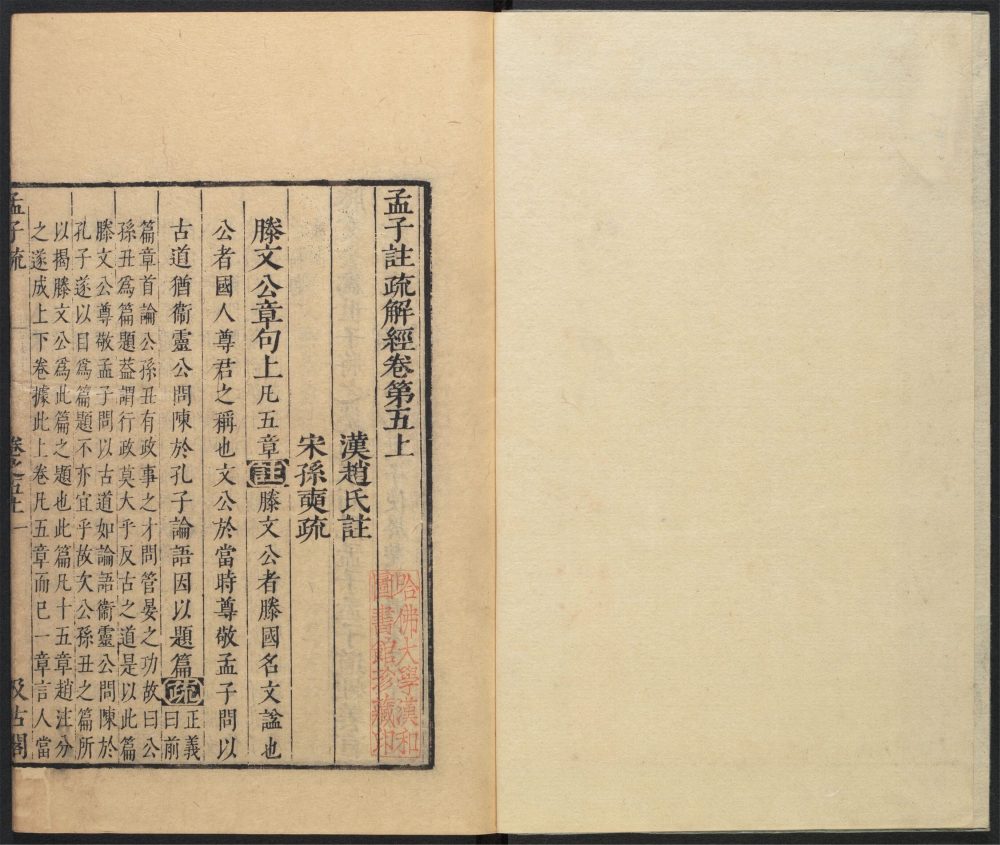 孟子註疏解經卷第五上
漢趙氏註
宋孫奭疏
滕文公章句上凡五章註滕文公者滕國名文諡也
公者國人尊君之稱也文公於當時尊敬孟子問以
古道猶衞靈公問陳於孔子論語因以題篇疏正義
曰前
篇章首論公孫丑有政事之才問管晏之功故曰公
孫丑爲篇題葢謂行政莫大乎反古之道是以此篇
滕文公尊敬孟子問以古道如論語衞靈公問陳於
孔子遂以目爲篇題不亦宜乎故次公孫丑之篇所
以揭滕文公爲此篇之題也此篇凡十五章趙注分
之遂成上下卷據此上卷凡五章而已一章言人當
孟子疏
卷之五上
一
汲古閣
哈佛大學漢和
圖書館珍藏印